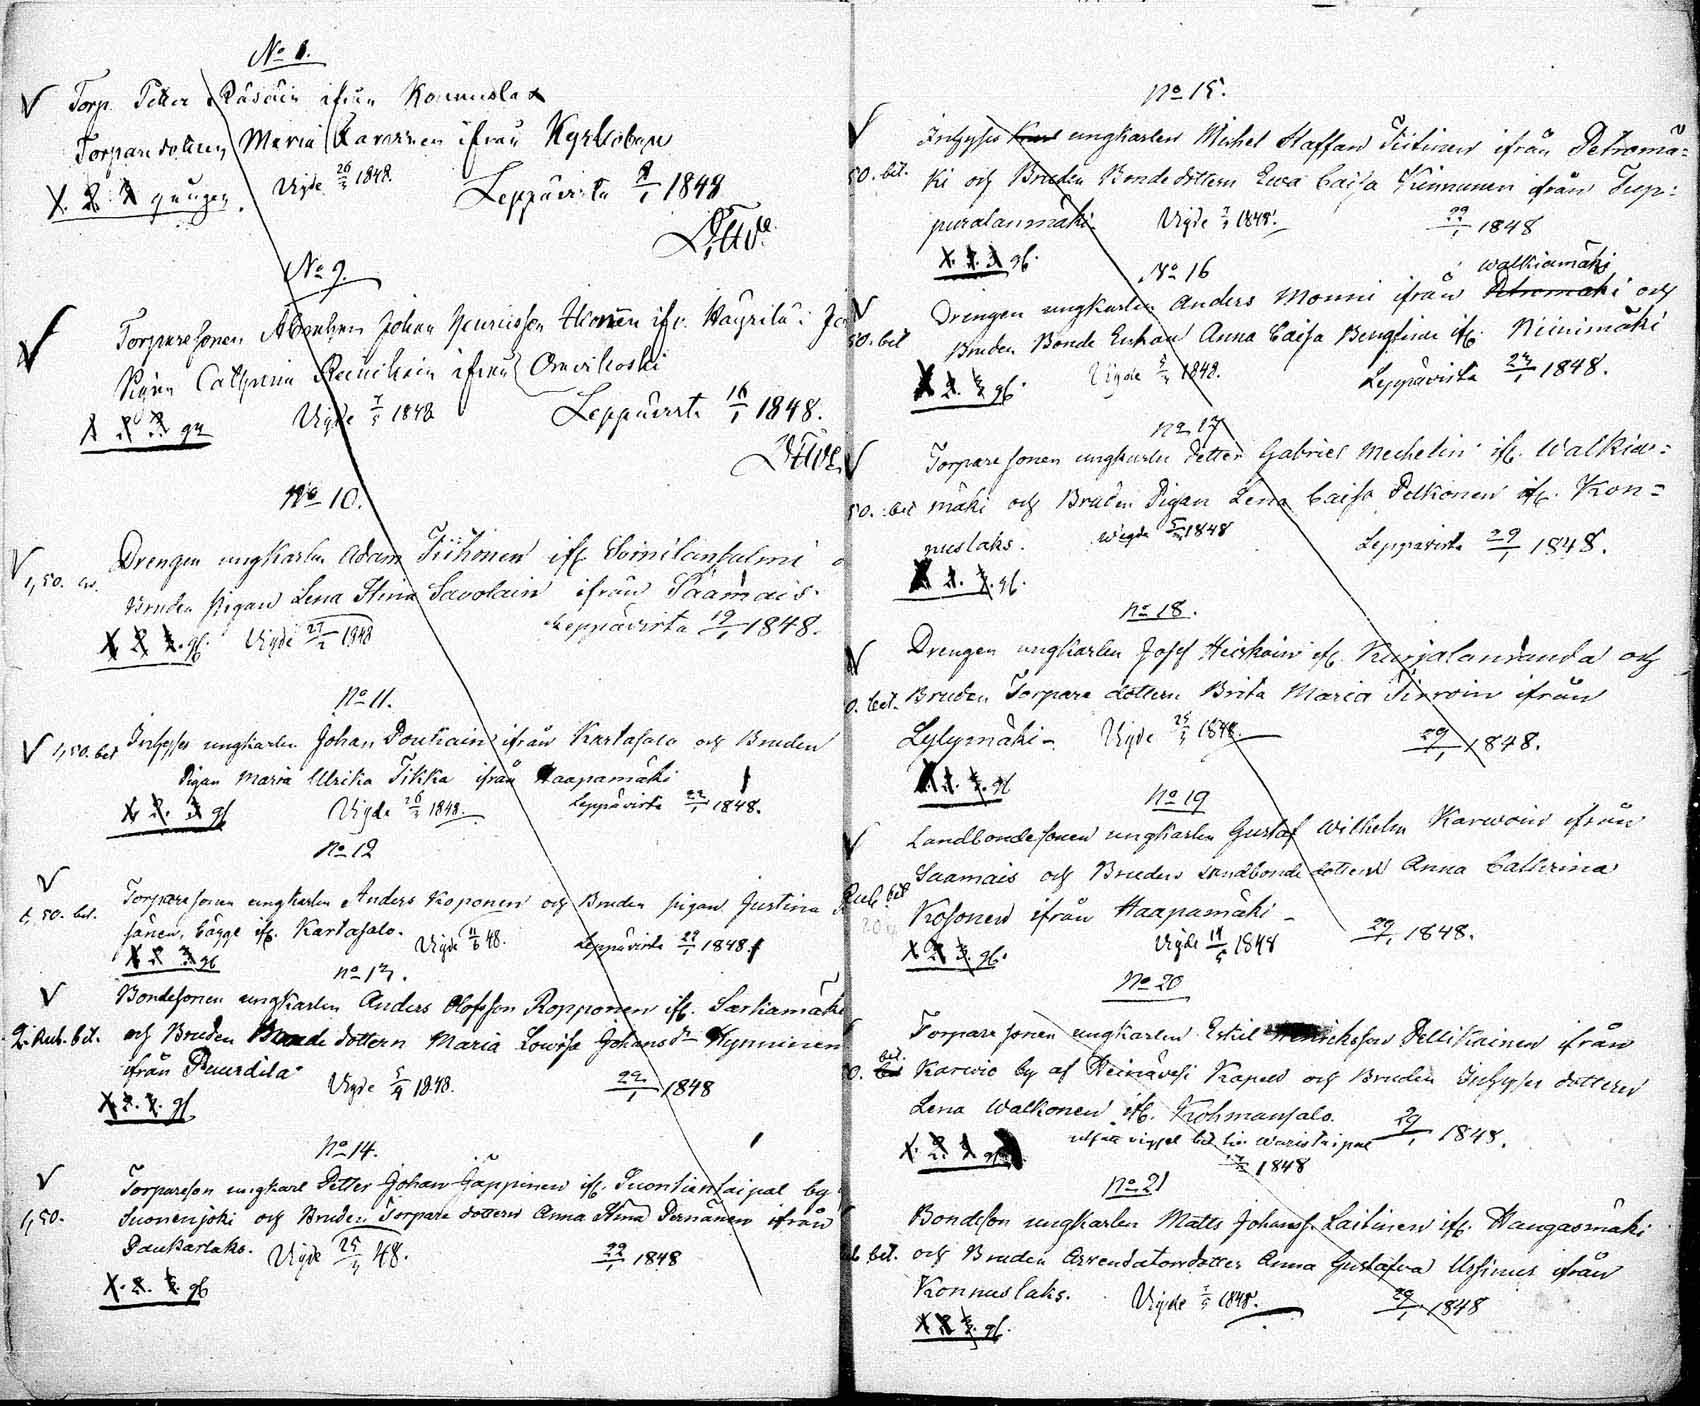 No 8.
Torp. Petter Räsäin ifrån Konnuslax
Torpare dottren Maria Karvinen ifrån
X. 2. 3 gången. Vigde 26/3 1848. Leppävirta 9/1 1848
No 9.
Torpare sonen Abraham Johan Henricsson ifr.
Pigan Catharina ifrån Oravikoski
1 2 3 gn Vigde 7/5 1848 Leppävirta 16/1 1848.
No 10.
Drengen ungkarlen Adam Tiihonen ifr. Soinilansalmi
1,50.
Bruden pigan Lena Stina Savolain ifrån Saamais.
X 2 3. gg. Vigde 27/2 1848 Leppävirta 19/1 1848.
No 11.
1,50. bet Inhyses ungkarlen Johan Poukain ifrån Kartasalo och Bruden
Pigan Maria Ulrika Tikka ifrån Haapamäki
X. 2. 3 gg Vigde 26/3 1848. Leppävirta 22/1 1848.
No 12
Torpare sonen ungkarlen Anders Koponen och Bruden pigan Justina
1,50. bet.
sänen, bägge ifr. Kartasalo. Vigde 11/6 48. Leppävirta 22/1 1848.
X 2 3 gg
No 13.
Bondesonen ungkarlen Anders Olofsson Ropponen ifr. Sarkamäki
2. Rub. bet. och Bruden Bonde dottern Maria Lowisa Johans dr Hynninen
ifrån Vigde 5/4 1848. 22/1 1848
X 2. 3. gg.
No 14.
Torpareson ungkarl Petter Johan Jäppinen ifr. Suontientaipal by
1,50. Suonenjoki och Bruden Torpare dottern Anna Stina Pernänen ifrån
Paukarlaks. Vigde 25/3 48. 22/1 1848
X. 2. 3. gg
No 15.
Inhyses ungkarlen Michel Staffan Tiitinen ifrån Petromä=
50. bet. ki och Bruden Bonde dottern Ewa Caisa Kinnunen ifrån Tup=
puralanmäki. Vigde 1848. 29/1 1848
X. 2. 3 gg.
No 16
Walkiamäki
Drengen ungkarlen Anders Monni ifrån Petromäki och
50. bet Bruden Bonde Enkan Anna Caisa ifr. Niinimäki
X 2. 3 gg. Vigde 1848. Leppävirta 29/1 1848.
No 17
Torpare sonen ungkarlen Petter Gabriel Mechelin ifr. Walkia=
50. bet mäki och Bruden Pigan Lena Caisa Pelkonen ifr. Kon=
nuslaks. Wigde 1848 Leppävirta 29/1 1848.
X 2. 3. gg.
No 18.
Drengen ungkarlen Josef Heiskain ifr. Kurjalanranda och
0. bet. Bruden Torpare dottern Brita Maria Tirroin ifrån
Lylymäki. Vigde 25/3 1848. 29/1 1848.
X. 2. 3. gg
No 19
Landbondesonen ungkarlen Gustaf Wilhelm Karwoin ifrån
Saamais och Bruden Landbonde dottern Anna Catherina
Rub. bet Kosonen ifrån Haapamäki
X 2 3. gg. Vigde 1848 29/1 1848.
No 20
Torpare sonen ungkarlen Eskil Henricksson Pellikainen ifrån
bet. Karwio by af Heinävesi Kapell och Bruden Inhyses dottern
Lena Walkonen ifr. Kohmansalo. 29/1 1848.
X. 2 3 gg
1848
No 21
Bondeson ungkarlen Matts Johanss. Laitinen ifr. Hangasmäki
bet. och Bruden Arrendatorsdotter Anna Gustafva Ursinus ifrån
Konnuslaks. Vigde 1848. 29/1 1848
X 2 3. gg.